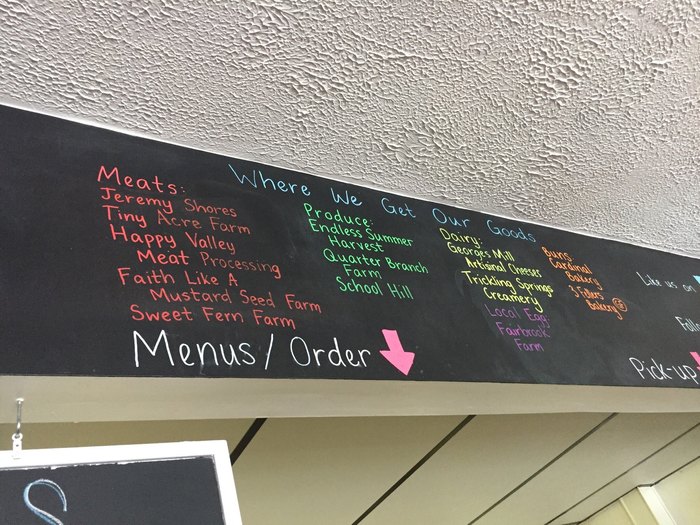 Where We Get Our Goods
Meats:
Jeremy Shores
Tiny Acre Farm
Happy Valley
Meat Processing
Faith Like A
Mustard Seed Farm
Sweet Fern Farm
Produce:
Endless Summer
Harvest
Quarter Branch
Farm
School Hill
Dairy:
Georges Mill
Artisinal Cheeses
Trickling Springs
Creamery
Local Egg:
Fairbrook
Farm
Buns
Cardinal
Bakery
Bakery
Like us on
Menus/Order
Pick-up
S